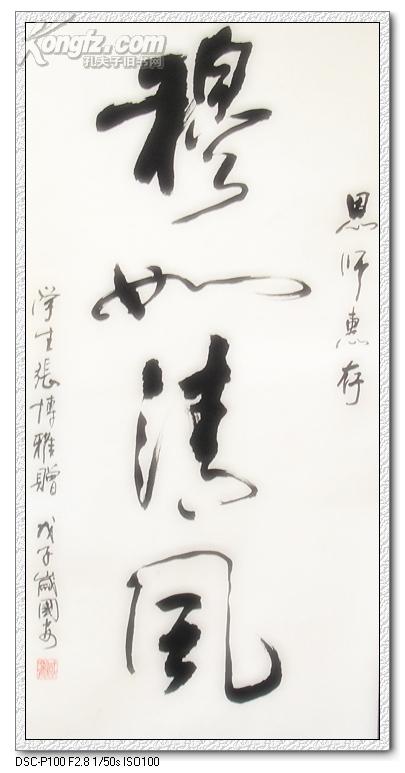 Kongfz.com
孔夫子旧书网
恩师惠存
穆如清風
学生張博雅贈 戊子歲國安
DSC-P100 F2.8 1/50s ISO100